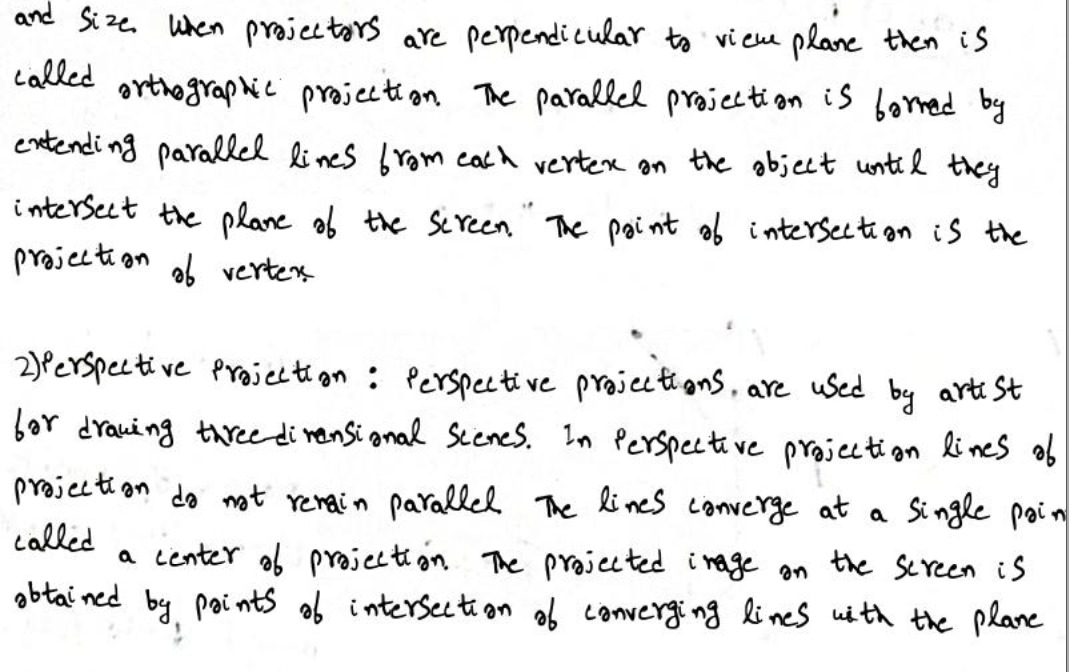 and size. When projectors are perpendicular to view plane then is
called orthographic projection. The parallel projection is formed by
extending parallel lines from each vertex on the object until they
intersect the plane of the screen. The point of intersection is the
projection of vertex.
2)Perspective Projection : Perspective projections, are used by artist
for drawing three-dimensional scenes. In Perspective projection lines of
projection do not remain parallel. The lines converge at a single poin
called a center of projection. The projected image on the screen is
obtained by points of intersection of converging lines with the plane